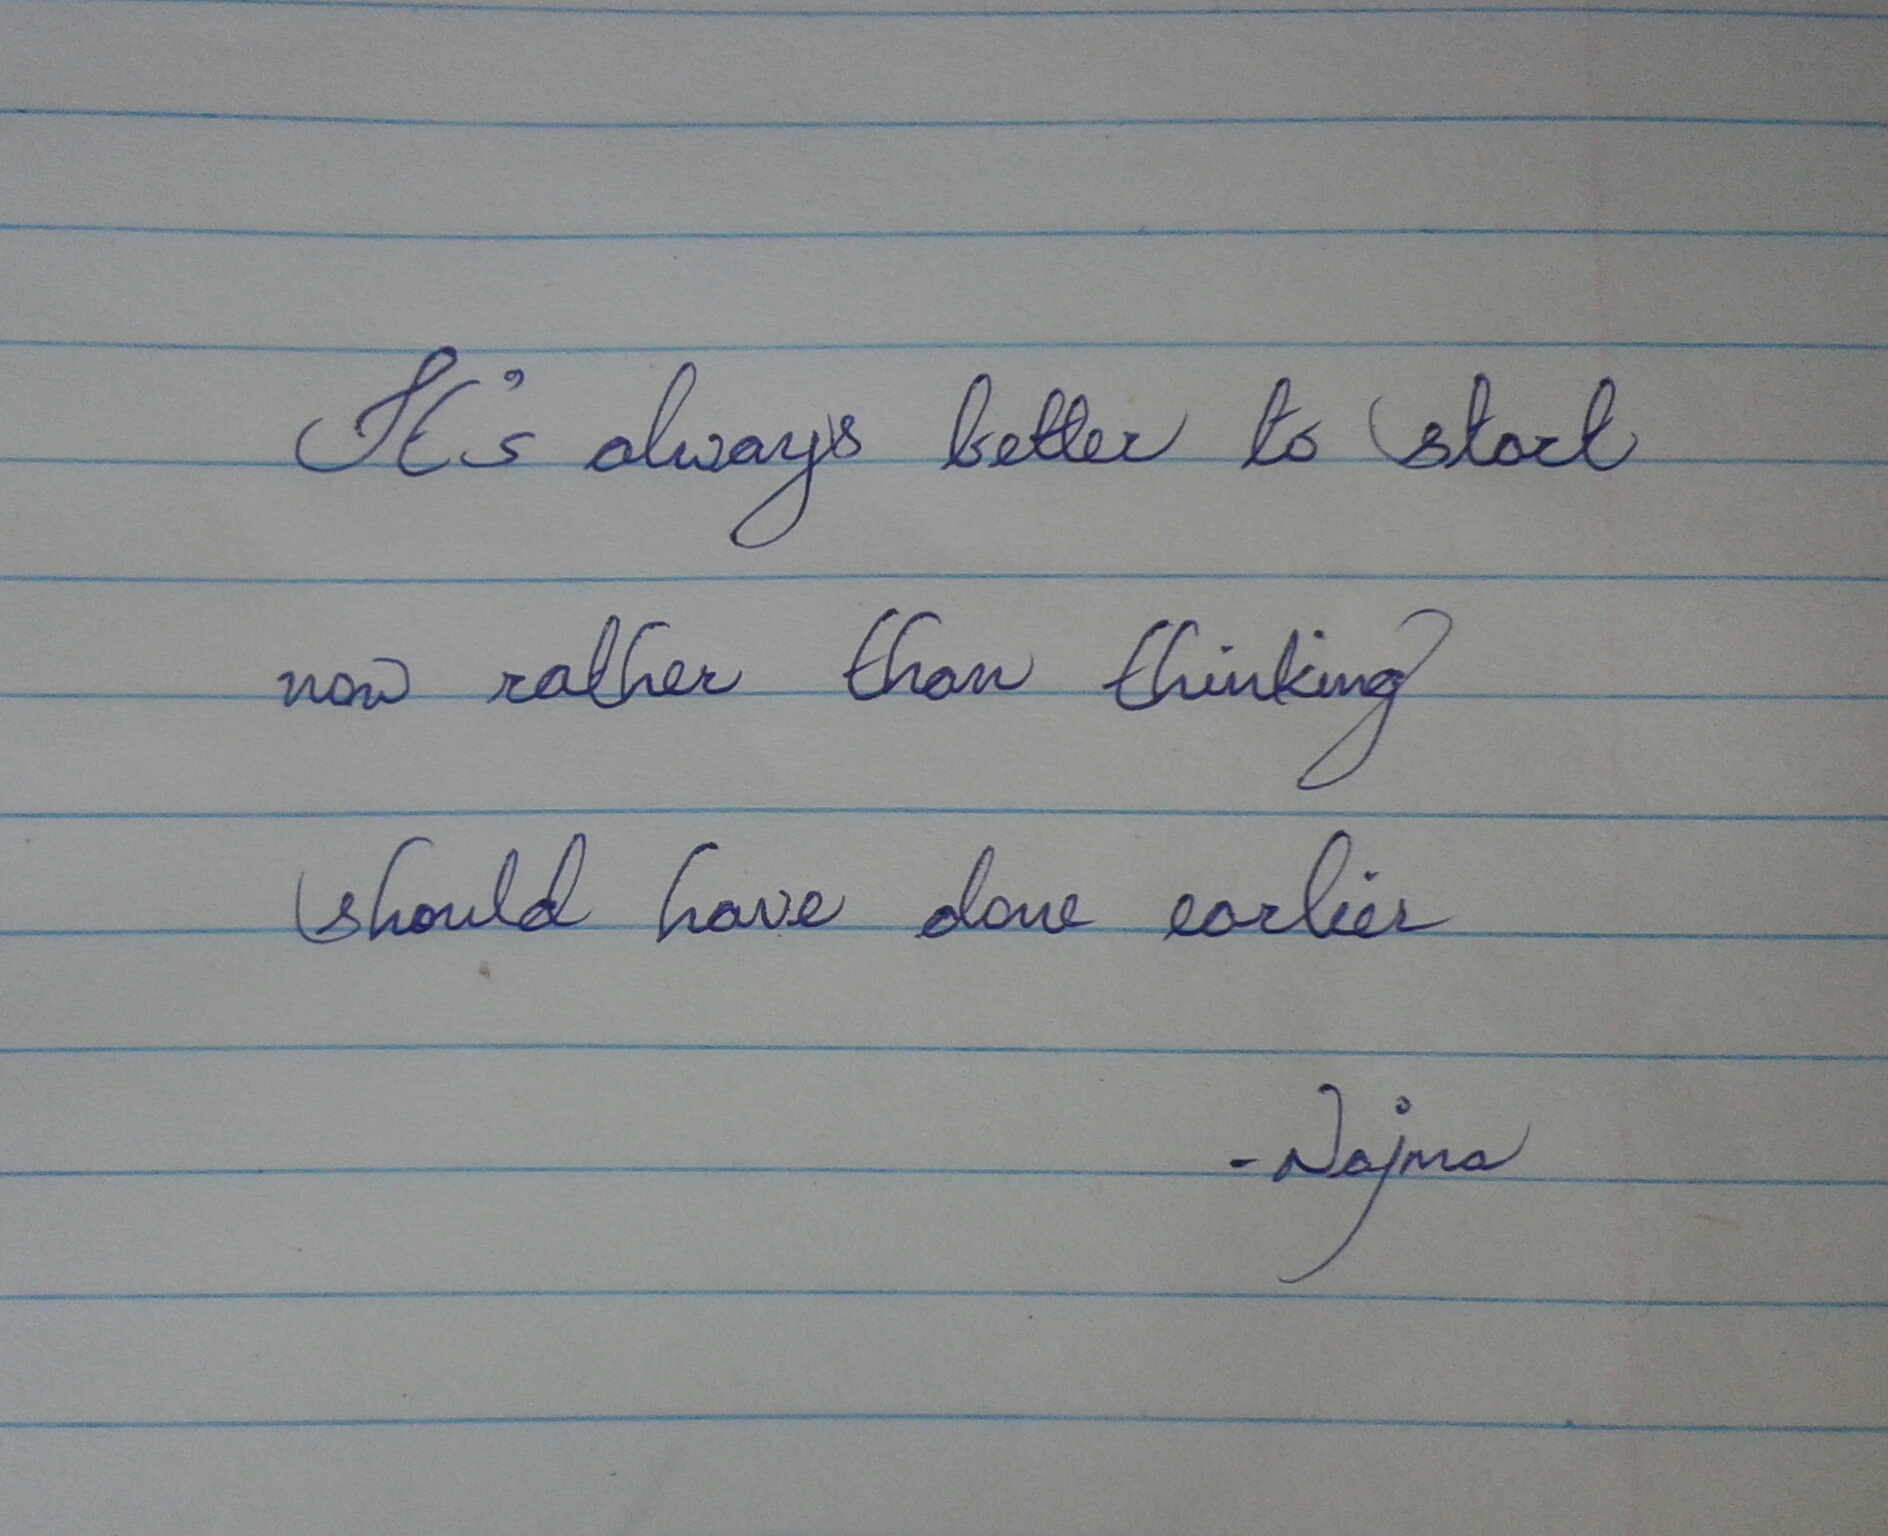 It's always better to start
now rather than thinking
should have done earlier
- Najma